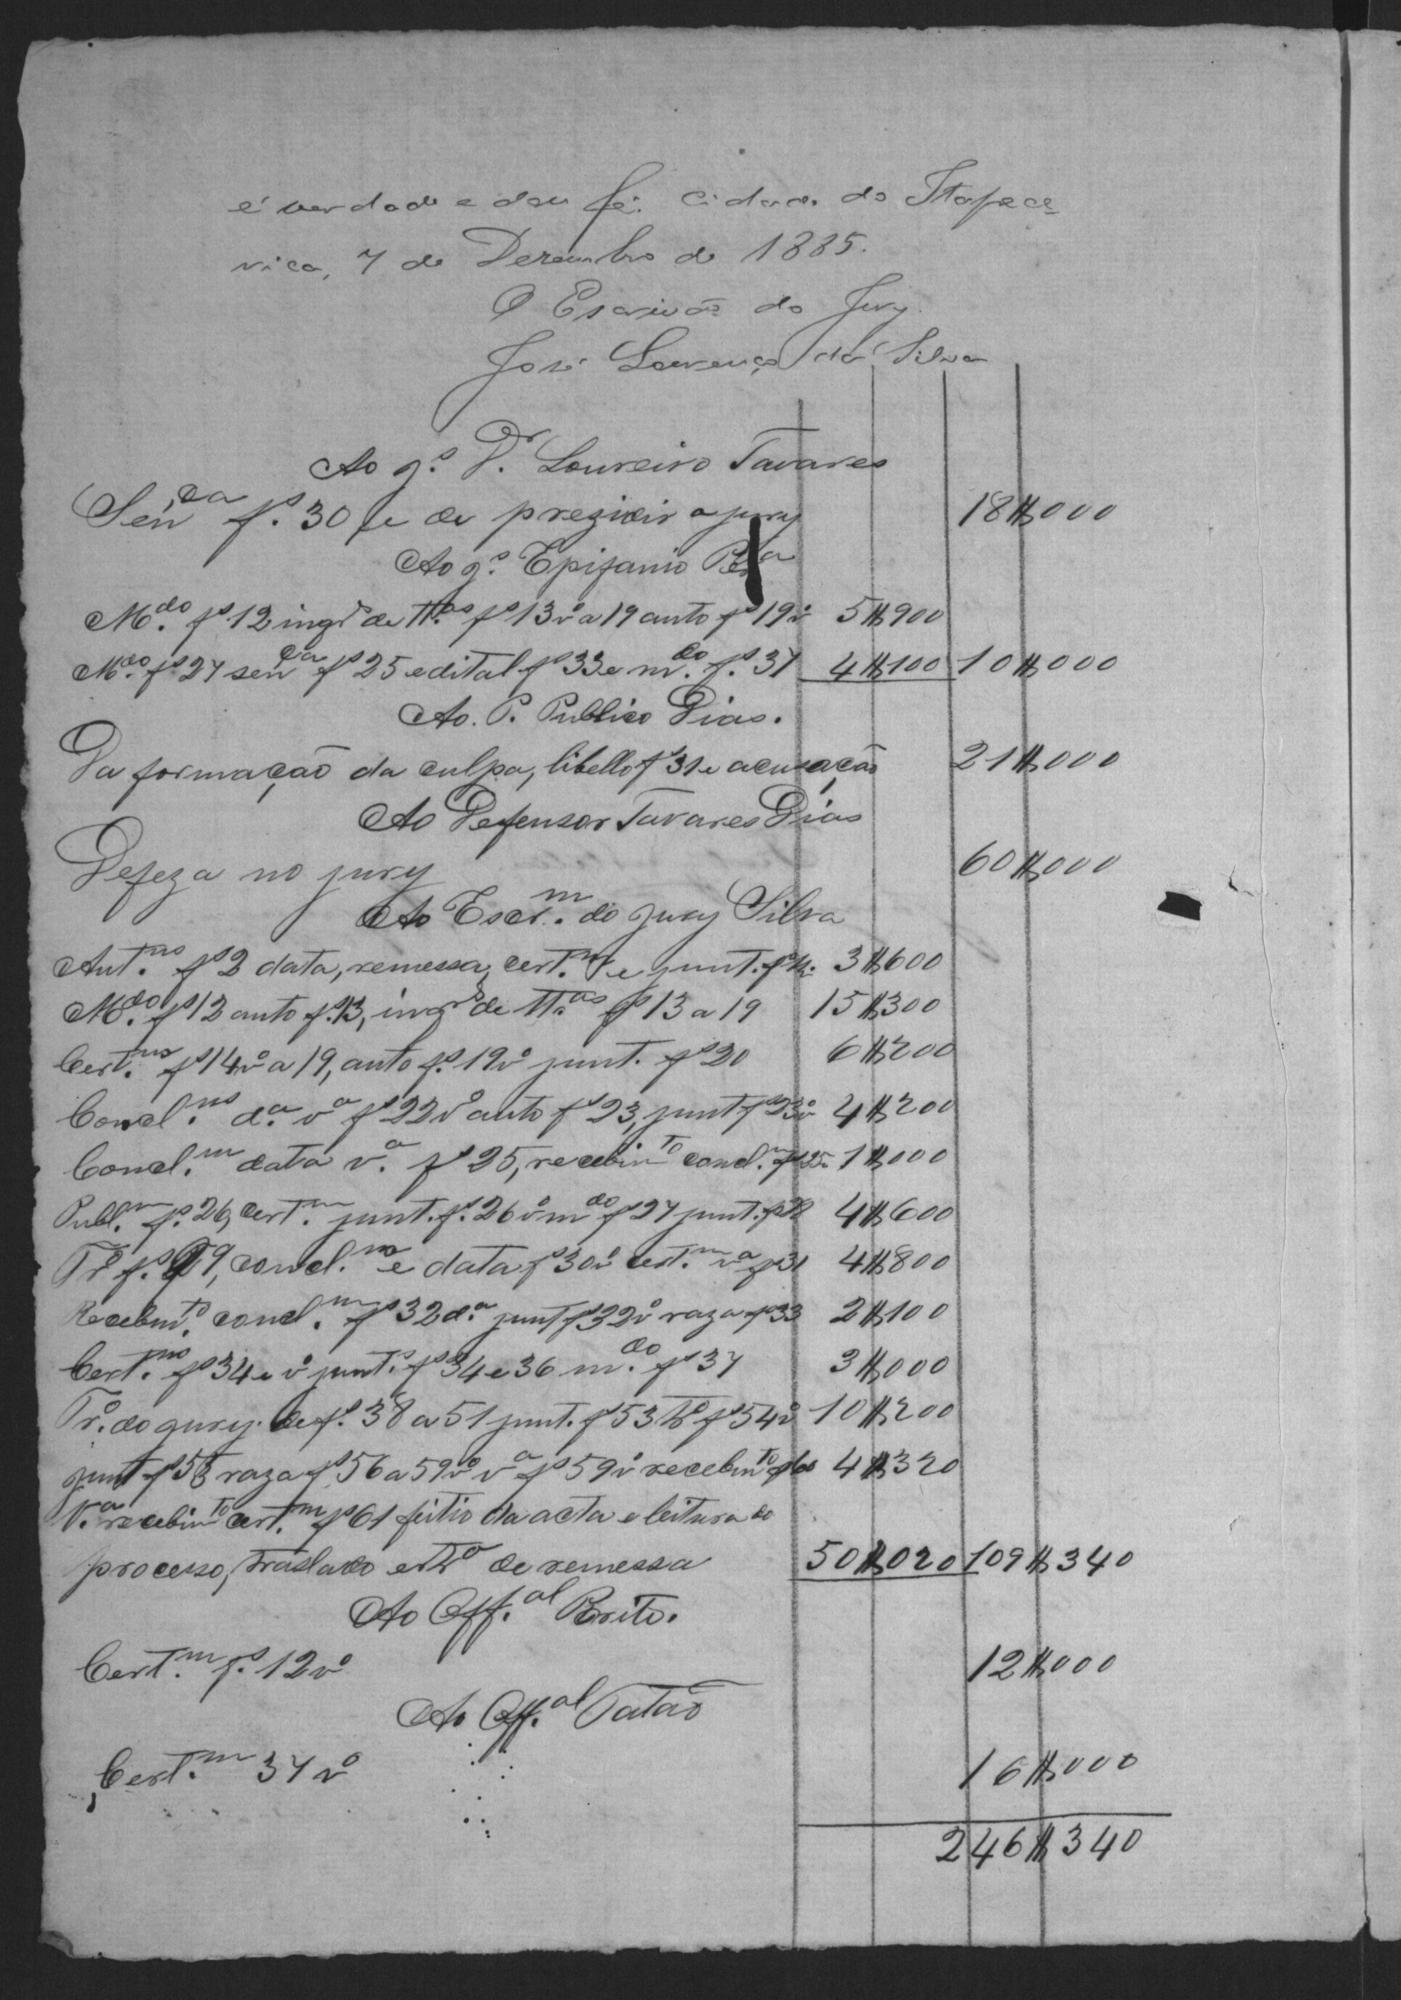 é verdade e dou fé. Cidade do Itapece
rica, 7 de Dezembro de 1885.
O Escrivão do Jury.
José Lourenço da Silva
Ao J.^s D.^r Loureiro Tavares
Sen^ça f^s. 30 e de prezidir o jury 18$000
Ao J.^s Epifanio P^ra
M.^do f^s 12 inq^r de tt.^as f^s 13 v^o a 19 auto f^s 19 v^o 5$900
M.^do f^s 27 sen^ça f^s 25 edital f^s 33 e m.^do f^s. 37 4$100 10$000
Ao. P. Publico Dias.
Da formação da culpa, libello f^s 31 e acusação 21$000
Ao Defensor Tavares Dias
Defeza no jury 60$000
Ao Escr.^m do jury Silva
Aut.^ns f^s 2 data, remessa, cert.^m e junt. 3$600
M.^do f^s 12 auto f^s. 13, inq^r de tt.^as f^s 13 a 19 15$300
Cert.^ns f^s 14 v^o a 19, auto f^s. 19 v^o junt. f^s 20 6$200
Concl.^ns d.^a v^a f^s 22 v^o auto f^s 23, junt f^s 23 v^o 4$200
Concl.^m data v.^a f^s 25, recebim^to concl.^m f^s 25 1$000
Publ.^m f^s. 26, cert.^m junt. f^s. 26 v^o m^do f^s 27 junt. f^s 28 4$600
Tr^o f^s. 29, concl.^m e data f^s 30 v^o cert.^m v^a f^s 31 4$800
Recebm.^to concl.^m f^s 32 d.^a junt f^s 32 v^o raza f^s 33 2$100
Cert.^ns f^s 34 e v^o junt.^s f^s 34 e 36 m.^do f^s 37 3$000
Tr^o. do jury de f^s. 38 a 51 junt. f^s 53 f^s 54 v^o 10$200
junt f^s 55 raza f^s 56 a 59 v^o v^a f^s 59 v^o recebim^to f^s 60 4$320
V.^a recebim^to cert.^m f^s 61 feitio da acta e leitura do
processo, traslado e tr^o de remessa 50$020 109$340
Ao Off.^al Brito.
Cert.^m f^s. 12 v^o 12$000
Ao Off.^al Tatão
Cert.^m 37 v^o 16$000
246$340